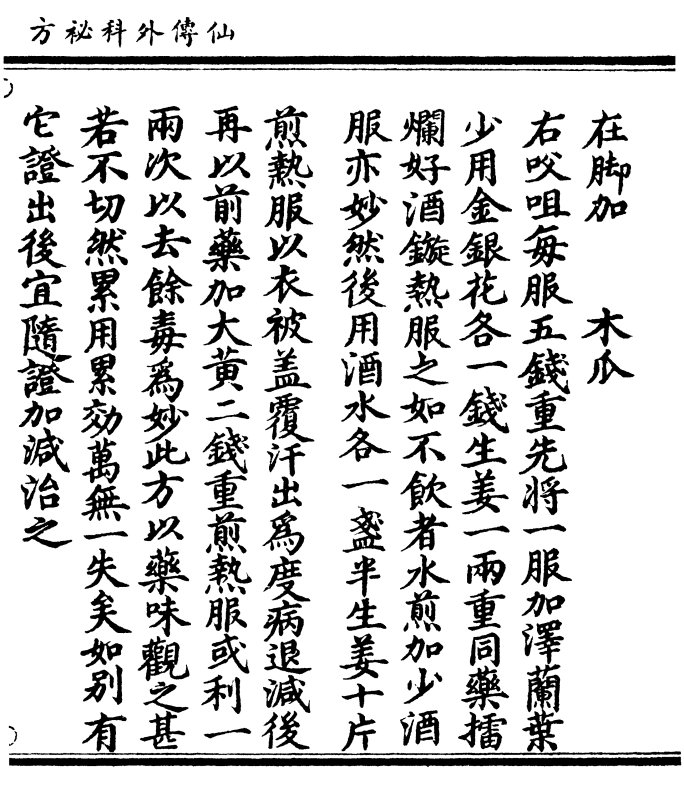 仙傳外科祕方
在脚加　木瓜
右㕮咀每服五錢重先將一服加澤蘭葉
少用金銀花各一錢生姜一兩重同藥擂
爛好酒鏇熱服之如不飲者水煎加少酒
服亦妙然後用酒水各一盞半生姜十片
煎熱服以衣被盖覆汗出爲度病退減後
再以前藥加大黄二錢重煎熱服或利一
兩次以去餘毒爲妙此方以藥味觀之甚
若不切然累用累効萬無一失矣如别有
它證出後宜隨證加減治之